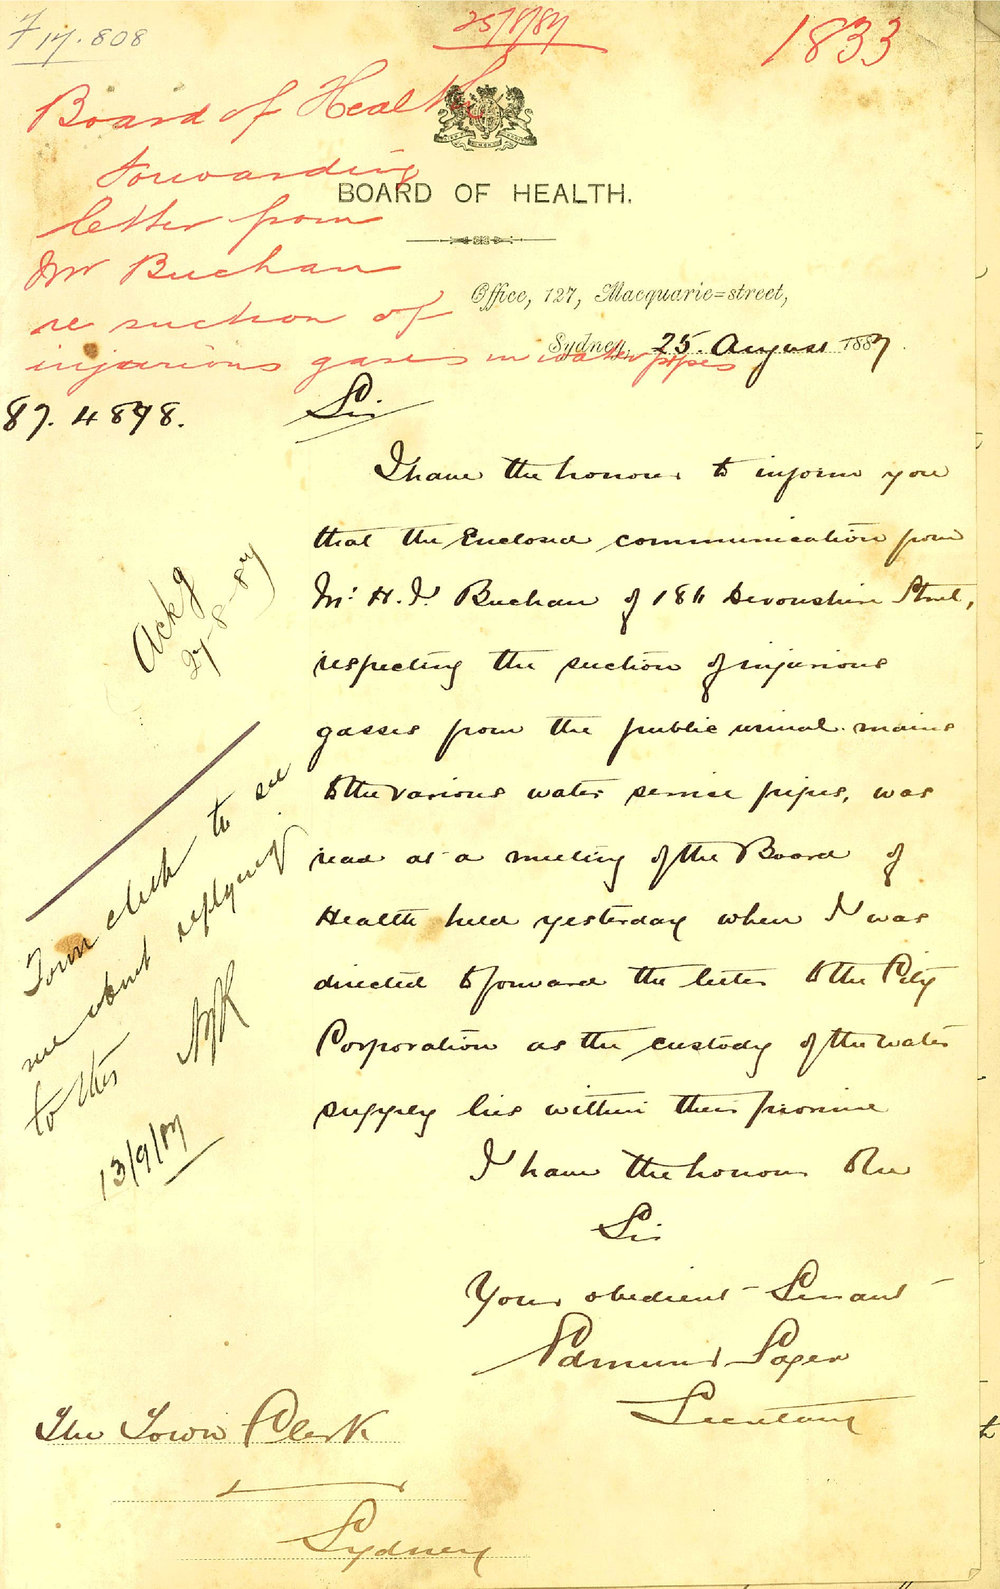 F 17.808
25/8/87
1833
Board of Health
forwarding
letter from
Mr Buchan
re suction of
injurious gases in water pipes
BOARD OF HEALTH.
Office, 127, Macquarie=street,
Sydney, 25. August 1887.
87. 4878.
Sir
I have the honour to inform you
that the Enclosed communication from
Mr. H. J. Buchan of 186 Devonshire Street,
respecting the suction of injurious
gasses from the public urinal mains
to the various water service pipes, was
read at a meeting of the Board of
Health held yesterday when I was
directed to forward the letter to the City
Corporation as the custody of the water
supply lies within their province
I have the honour to be
Sir
Your obedient Servant
Edmund Sager
Secretary
The Town Clerk
Sydney
Ackg
27-8-87
Town clerk to see
me about replying
to this
13/9/87